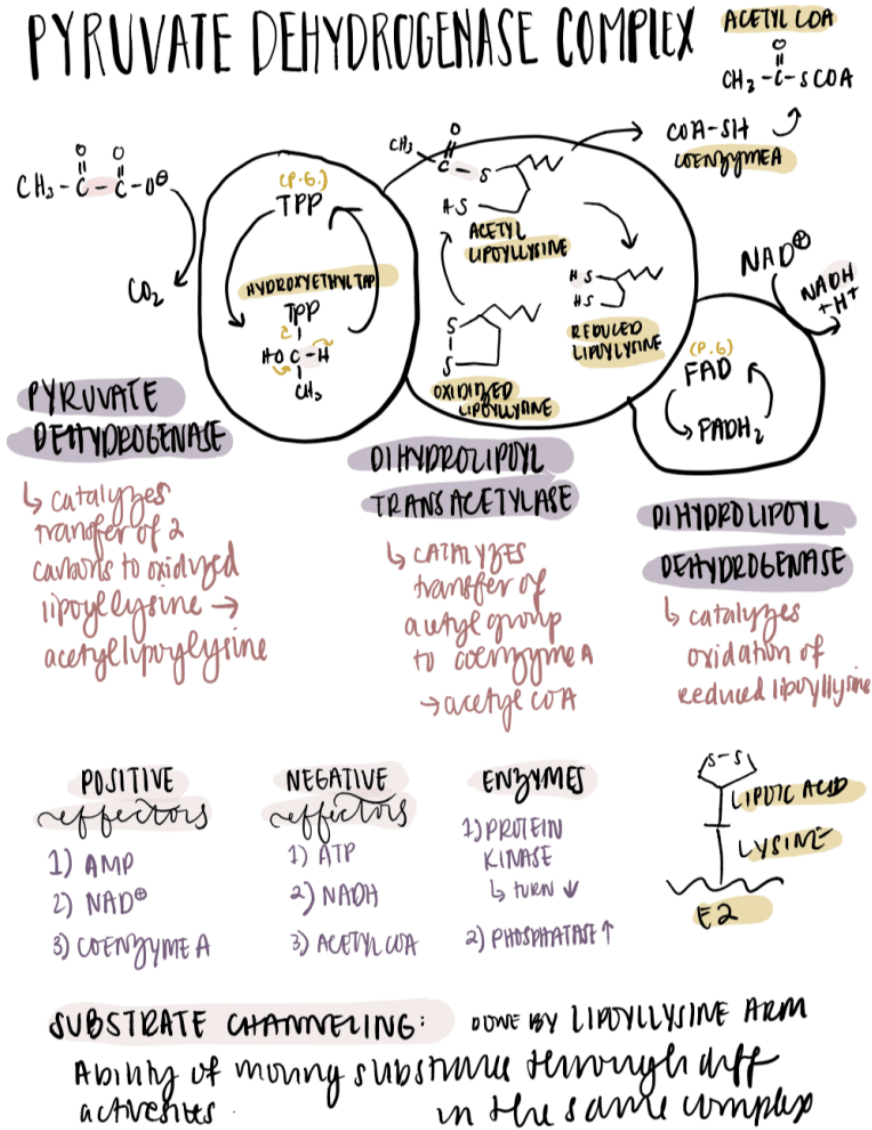 PYRUVATE DEHYDROGENASE COMPLEX
ACETYL COA
O
CH3-C-SCOA
COA-SH
COENZYME A
O O
CH3-C-C-O⊖
CO2
(P.G.)
TPP
HYDROXYETHYL TPP
TPP
HO C-H
CH3
O
CH3 C-S
HS
ACETYL
LIPOYLLYSINE
S
S
OXIDIZED
LIPOYLLYSINE
HS
HS
REDUCED
LIPOYLYSINE
NAD⊕
NADH
+H+
(P.G)
FAD
FADH2
PYRUVATE
DEHYDROGENASE
↳ catalyzes
transfer of 2
carbons to oxidized
lipoyllysine →
acetyllipoylysine
DIHYDROLIPOYL
TRANSACETYLASE
↳ CATALYZES
transfer of
acetyl group
to coenzyme A
→ acetyl COA
DIHYDROLIPOYL
DEHYDROGENASE
↳ catalyzes
oxidation of
reduced lipoyllysine
POSITIVE
effectors
1) AMP
2) NAD⊕
3) COENZYME A
NEGATIVE
effectors
1) ATP
2) NADH
3) ACETYL COA
ENZYMES
1) PROTEIN
KINASE
↳ turn ↓
2) PHOSPHATASE ↑
S-S
LIPOIC ACID
LYSINE
E2
SUBSTRATE CHANNELING: DONE BY LIPOYLLYSINE ARM
Ability of moving substrate through diff
activesites in the same complex